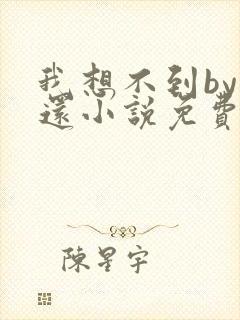 我想不到by
還小說免費
陳星宇